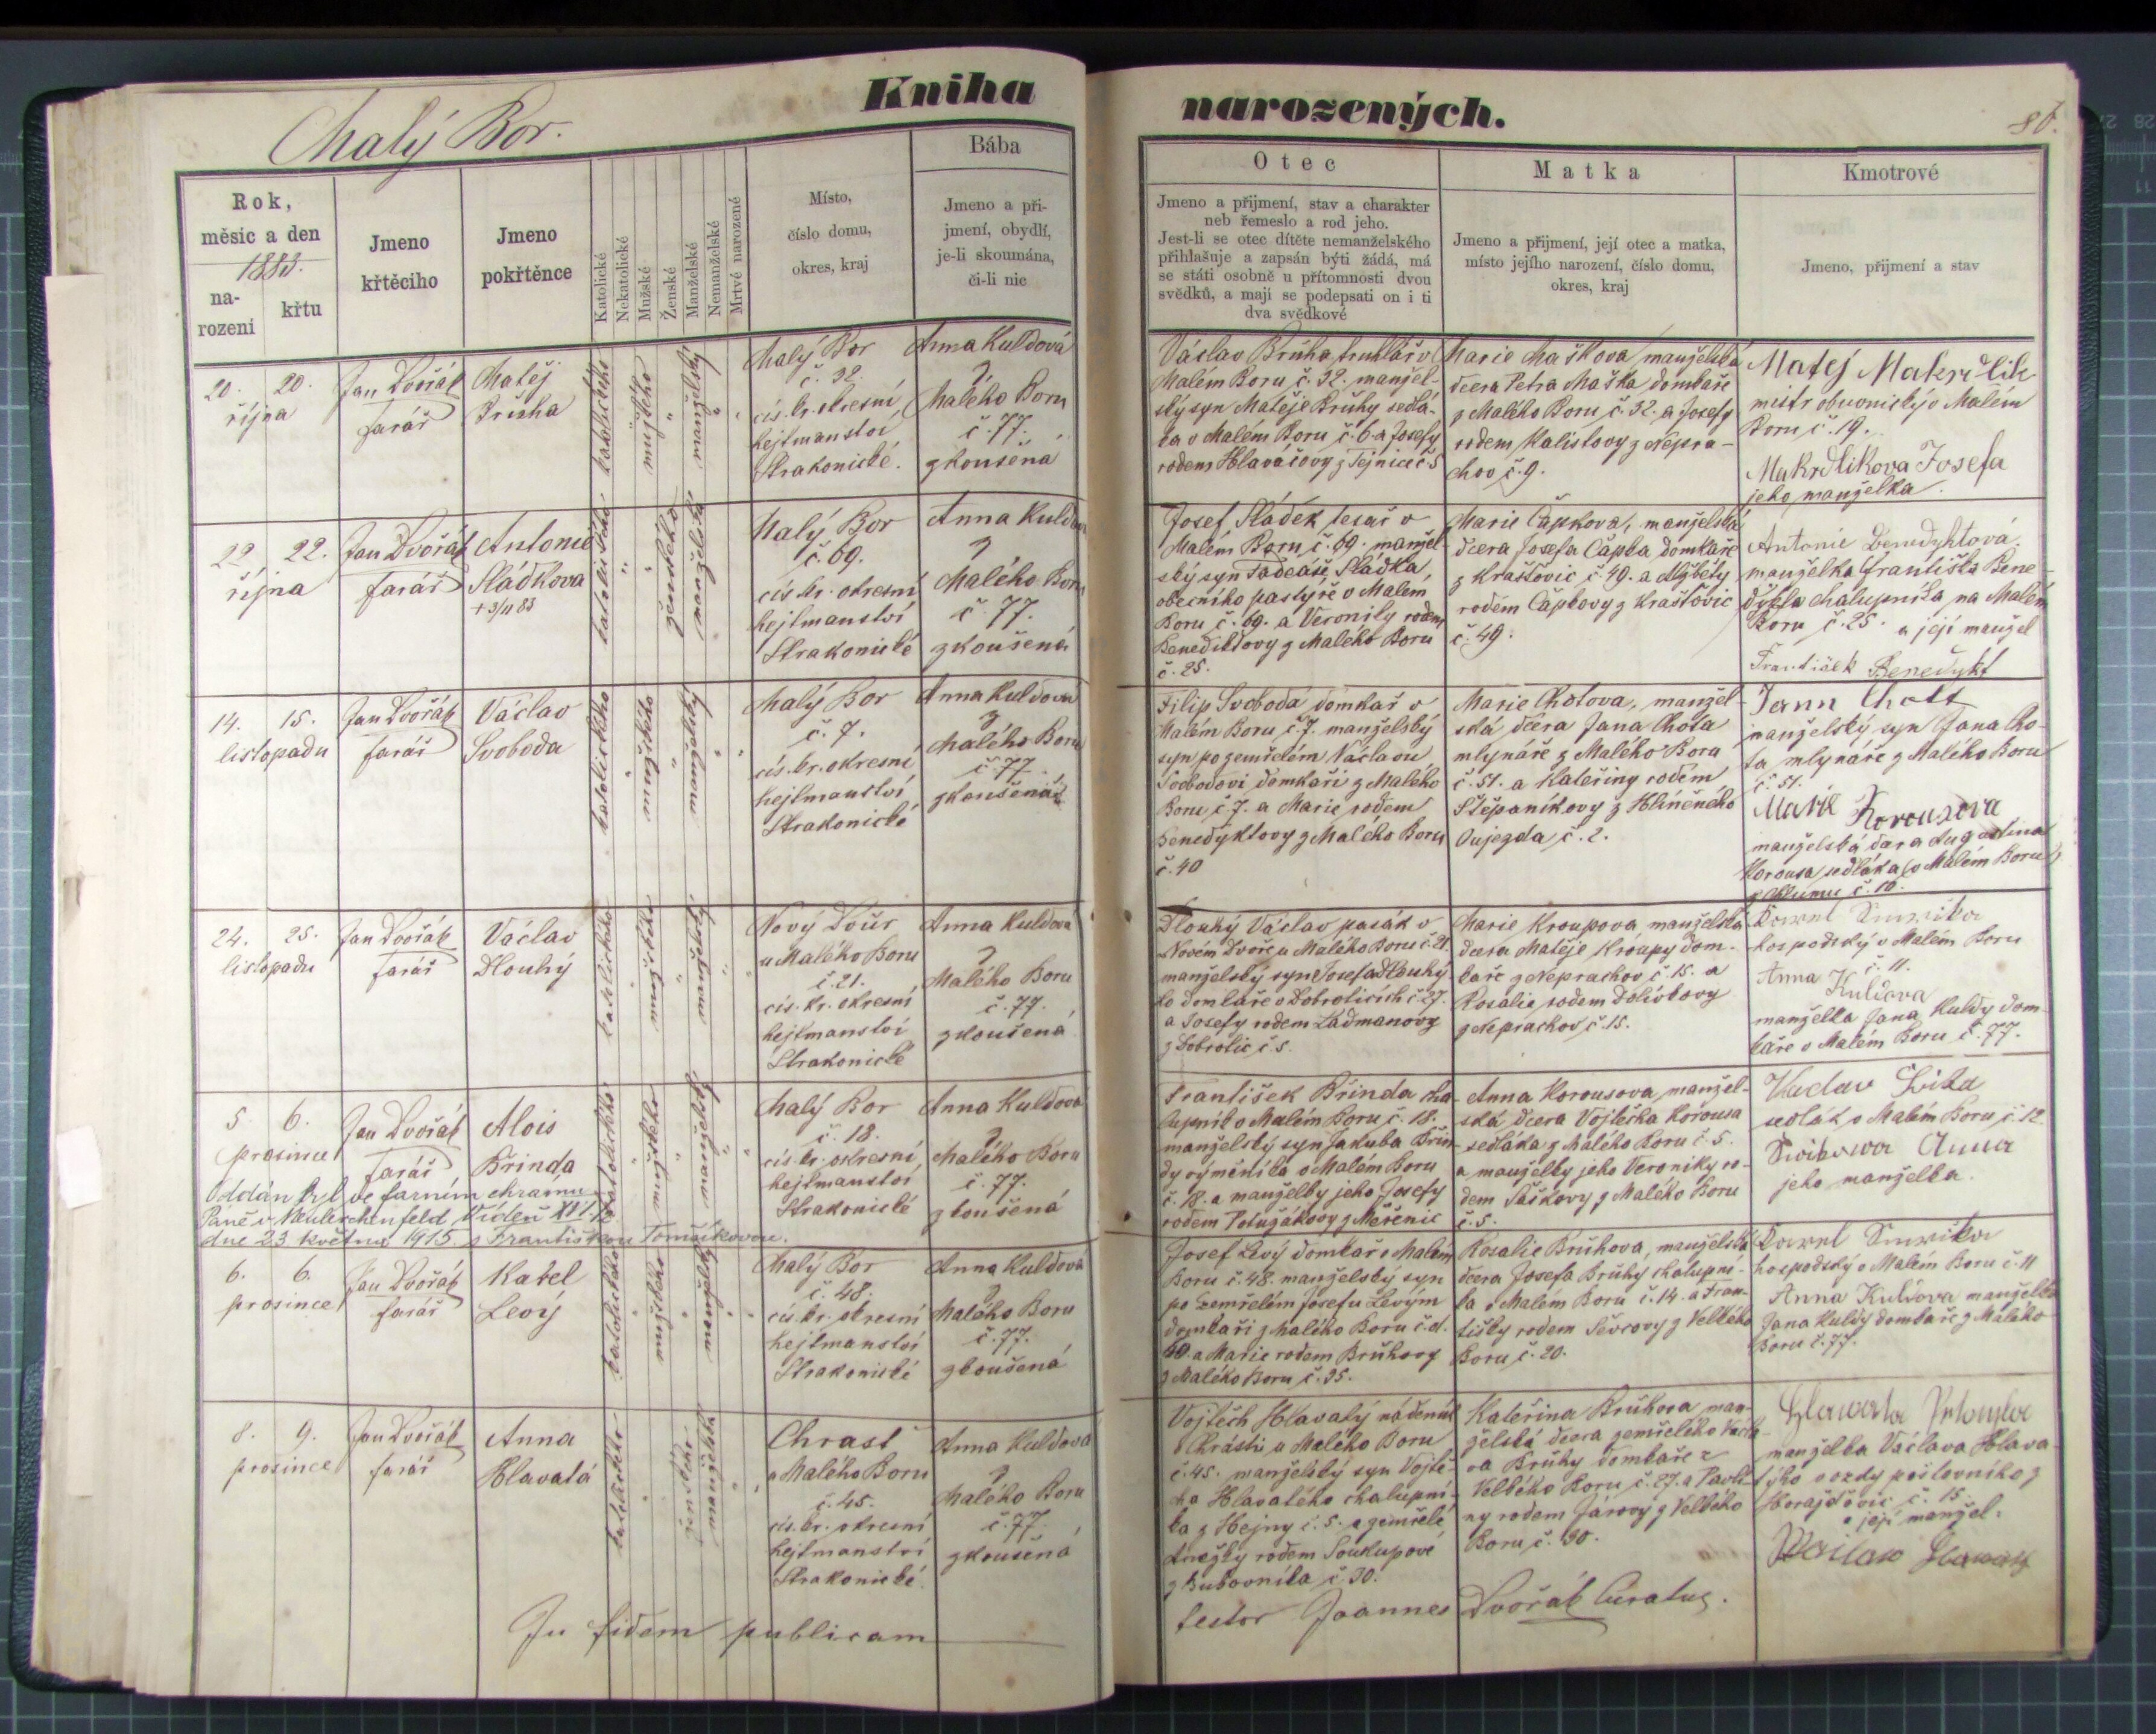 Kniha
narozených.
Malý Bor.
Rok,
měsíc a den
1883.
na-
rozeni
křtu
Jmeno
křtěcího
Jmeno
pokřtěnce
Katolické
Nekatolické
Mužské
Ženské
Manželské
Nemanželské
Mrtvé narozené
Místo,
číslo domu,
okres, kraj
Bába
Jmeno a při-
jmení, obydlí,
je-li skoumána,
či-li nic
Otec
Jmeno a přijmení, stav a charakter
neb řemeslo a rod jeho.
Jest-li se otec dítěte nemanželského
přihlašuje a zapsán býti žádá, má
se státi osobně u přítomnosti dvou
svědků, a mají se podepsati on i ti
dva svědkové
Matka
Jmeno a přijmení, její otec a matka,
místo jejího narození, číslo domu,
okres, kraj
Kmotrové
Jmeno, přijmení a stav
20. 20.
října
Jan Dvořák
farář
Matěj
Průha
katolického
mužského
manželský
Malý Bor
č. 32.
cís. kr. okresní
hejtmanství
Strakonické.
Anna Kuldová
z
Malého Boru
č. 77.
zkoušená
Václav Průha truhlář v
Malém Boru č. 32. manžel-
ský syn Matěje Průhy sedlá-
ka v Malém Boru č. 6 a Josefy
rodem Hlaváčovy z Týnice č. 5
Marie Mašková manželská
dcera Petra Maška domkáře
z Malého Boru č. 32. a Josefy
rodem Kalistovy z Nepra-
chov č. 9.
Matěj Makrdlik
mistr obuvnický v Malém
Boru č. 19.
Makrdlikova Josefa
jeho manželka.
22. 22.
října
Jan Dvořák
farář
Antonie
Sládkova
+ 3/11 83
katolického
ženského
manželská
Malý Bor
č. 69.
cís. kr. okresní
hejtmanství
Strakonické
Anna Kuldova
z
Malého Boru
č. 77.
zkoušená
Josef Sládek tesař v
Malém Boru č. 69. manžel-
ský syn Tadeáše Sládka
obecního pastýře v Malém
Boru č. 69. a Veroniky rodem
Benediktovy z Malého Boru
č. 25.
Marie Čapkova, manželská
dcera Josefa Čapka domkáře
z Kraštovic č. 49. a Alžběty
rodem Čapkovy z Kraštovic
č. 49.
Antonie Benedyktová,
manželka Františka Bene-
dykta chalupníka na Malém
Boru č. 25. a její manžel
František Benedykt
14. 15.
listopadu
Jan Dvořák
farář
Václav
Svoboda
katolického
mužského
manželský
Malý Bor
č. 7.
cís. kr. okresní
hejtmanství
Strakonické
Anna Kuldova
z
Malého Boru
č. 77.
zkoušená
Filip Svoboda domkář v
Malém Boru č. 7. manželský
syn po zemřelém Václavu
Svobodovi domkáři z Malého
Boru č. 7. a Marie rodem
Benedyktovy z Malého Boru
č. 40
Marie Chotova, manžel-
ská dcera Jana Chota
mlynáře z Malého Bora
č. 51. a Kateřiny rodem
Štěpaníkovy z Hliněného
Oujezda č. 2.
Jann Chott
manželský syn Jana Cho-
ta mlynáře z Malého Boru
č. 51.
Marie Korousova
manželská dcera Augustina
Korousa sedláka v Malém Boru
z Chlumu č. 10.
24. 25.
listopadu
Jan Dvořák
farář
Václav
Dlouhý
katolického
mužského
manželský
Nový Dvůr
u Malého Boru
č. 21.
cís. kr. okresní
hejtmanství
Strakonické
Anna Kuldova
z
Malého Boru
č. 77.
zkoušená
Dlouhý Václav pasák v
Novém Dvoře u Malého Boru č. 21.
manželský syn Josefa Dlouhý
ho domkáře v Dobroticích č. 27.
a Josefy rodem Ladmanovy
z Dobrotic č. 5.
Marie Kroupova manželská
dcera Matěje Kroupy dom-
káře z Neprachov č. 15. a
Rosalie rodem Dolívkovy
z Neprachov č. 15.
hospodský v Malém Boru
č. 11.
Anna Kuldova
manželka Jana Kuldy dom-
káře v Malém Boru č. 77.
5. 6.
prosince
Jan Dvořák
farář
Alois
Brinda
katolického
mužského
manželský
Oddán byl ve farním chrámu
Páně v Neulerchenfeld Vídeň XVI.
dne 23 května 1915. s Františkou Tomáškovou.
Malý Bor
č. 18.
cís. kr. okresní
hejtmanství
Strakonické
Anna Kuldova
z
Malého Boru
č. 77.
zkoušená
František Brinda cha-
lupník v Malém Boru č. 18.
manželský syn Jakuba Brin-
dy výměníka v Malém Boru
č. 18. a manželky jeho Josefy
rodem Polužákovy z Měřenic
Anna Korousova, manžel-
ská dcera Vojtěcha Korousa
sedláka z Malého Boru č. 5.
a manželky jeho Veroniky ro-
dem Saškovy z Malého Boru
č. 5.
Vaclav
sedlák v Malém Boru č. 12.
Anna
jeho manželka.
6. 6.
prosince
Jan Dvořák
farář
Karel
Levý
katolického
mužského
manželský
Malý Bor
č. 48.
cís. kr. okresní
hejtmanství
Strakonické
Anna Kuldova
z
Malého Boru
č. 77.
zkoušená
Josef Levý domkář v Malém
Boru č. 48. manželský syn
po zemřelém Josefu Levým
domkáři z Malého Boru č. d.
48. a Marie rodem Průhovy
z Malého Boru č. 35.
Rosalie Průhova, manželská
dcera Josefa Průhy chalupní-
ka v Malém Boru č. 14. a Fran-
tišky rodem Ševcovy z Velkého
Boru č. 20.
hospodský v Malém Boru č. 11
Anna Kuldova manželka
Jana Kuldy domkáře z Malého
Boru č. 77.
8. 9.
prosince
Jan Dvořák
farář
Anna
Hlavatá
katolického
ženského
manželská
Chrast
u Malého Boru
č. 45.
cís. kr. okresní
hejtmanství
Strakonické.
Anna Kuldova
z
Malého Boru
č. 77.
zkoušená
Vojtěch Hlavatý nádeník
v Chrásti u Malého Boru
č. 45. manželský syn Vojtě-
cha Hlavatého chalupní-
ka z Hejny č. 5. a zemřelé
Anežky rodem Soukupové
z Bukovníka č. 30.
Kateřina Průhova man-
želská dcera zemřelého Václa-
va Průhy domkáře z
Velkého Boru č. 27. a Pavlí-
ny rodem Járovy z Velkého
Boru č. 30.
manželka Václava Hlava-
týho vozdy poštovního z
Horažďovic č. 15.
a její manžel.
In fidem publicam
testor Joannes Dvořák Curatus.